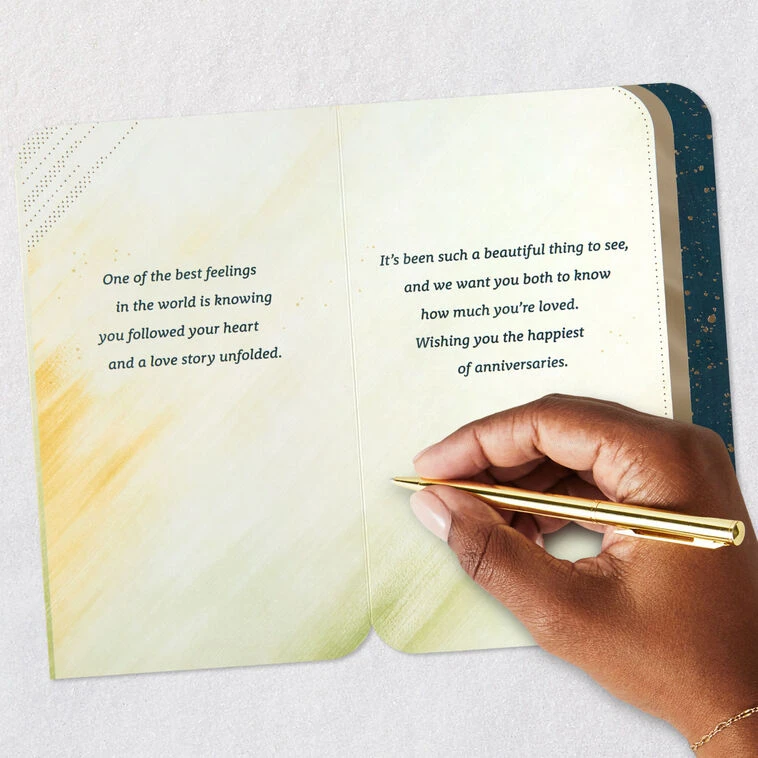 One of the best feelings
in the world is knowing
you followed your heart
and a love story unfolded.
It's been such a beautiful thing to see,
and we want you both to know
how much you're loved.
Wishing you the happiest
of anniversaries.